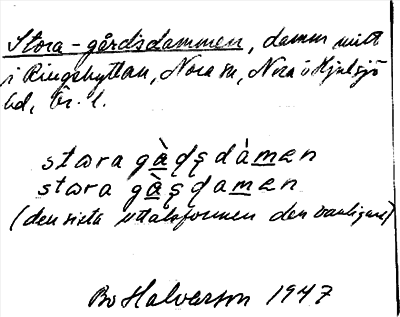 Stora-gårdsdammen, damm mitt
i Ringshyttan, Nora sn, Nora o Hjulsjö
bd, Ör. l.
stωra gὰḍṣdὰmen
stωra gὰṣḍamen
(den sista uttalsformen den vanligare)
Bo Halvarson 1947